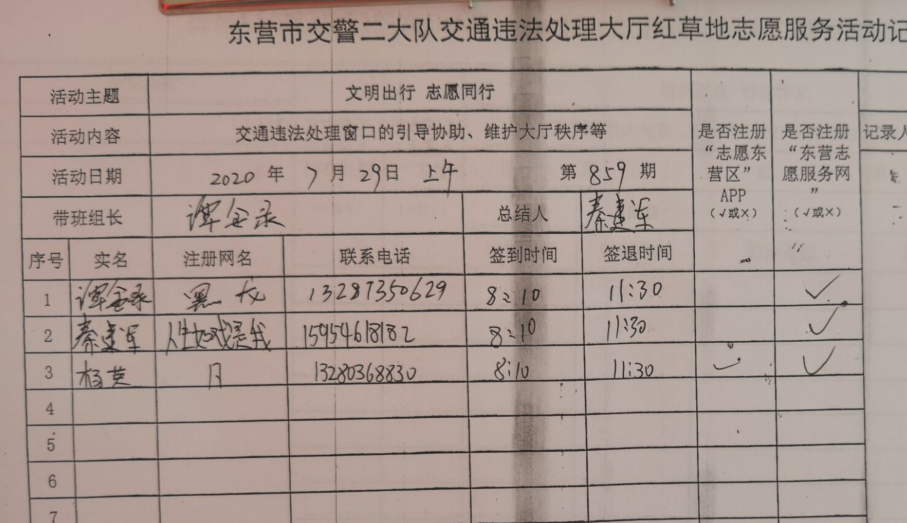 东营市交警二大队交通违法处理大厅红草地志愿服务活动记
活动主题 文明出行 志愿同行
活动内容 交通违法处理窗口的引导协助、维护大厅秩序等
活动日期 2020 年 7 月 29日 上午 第 859 期
带班组长 谭金录 总结人 秦建军
是否注册“志愿东营区”APP（√或×）
是否注册“东营志愿服务网”（√或×）
记录人
序号 实名 注册网名 联系电话 签到时间 签退时间
1 谭金录 黑龙 13287350629 8:10 11:30 ✓
2 秦建军 人生如戏是我 15954618182 8:10 11:30 ✓
3 杨英 月 13280368830 8:10 11:30 ✓ ✓
4
5
6
7